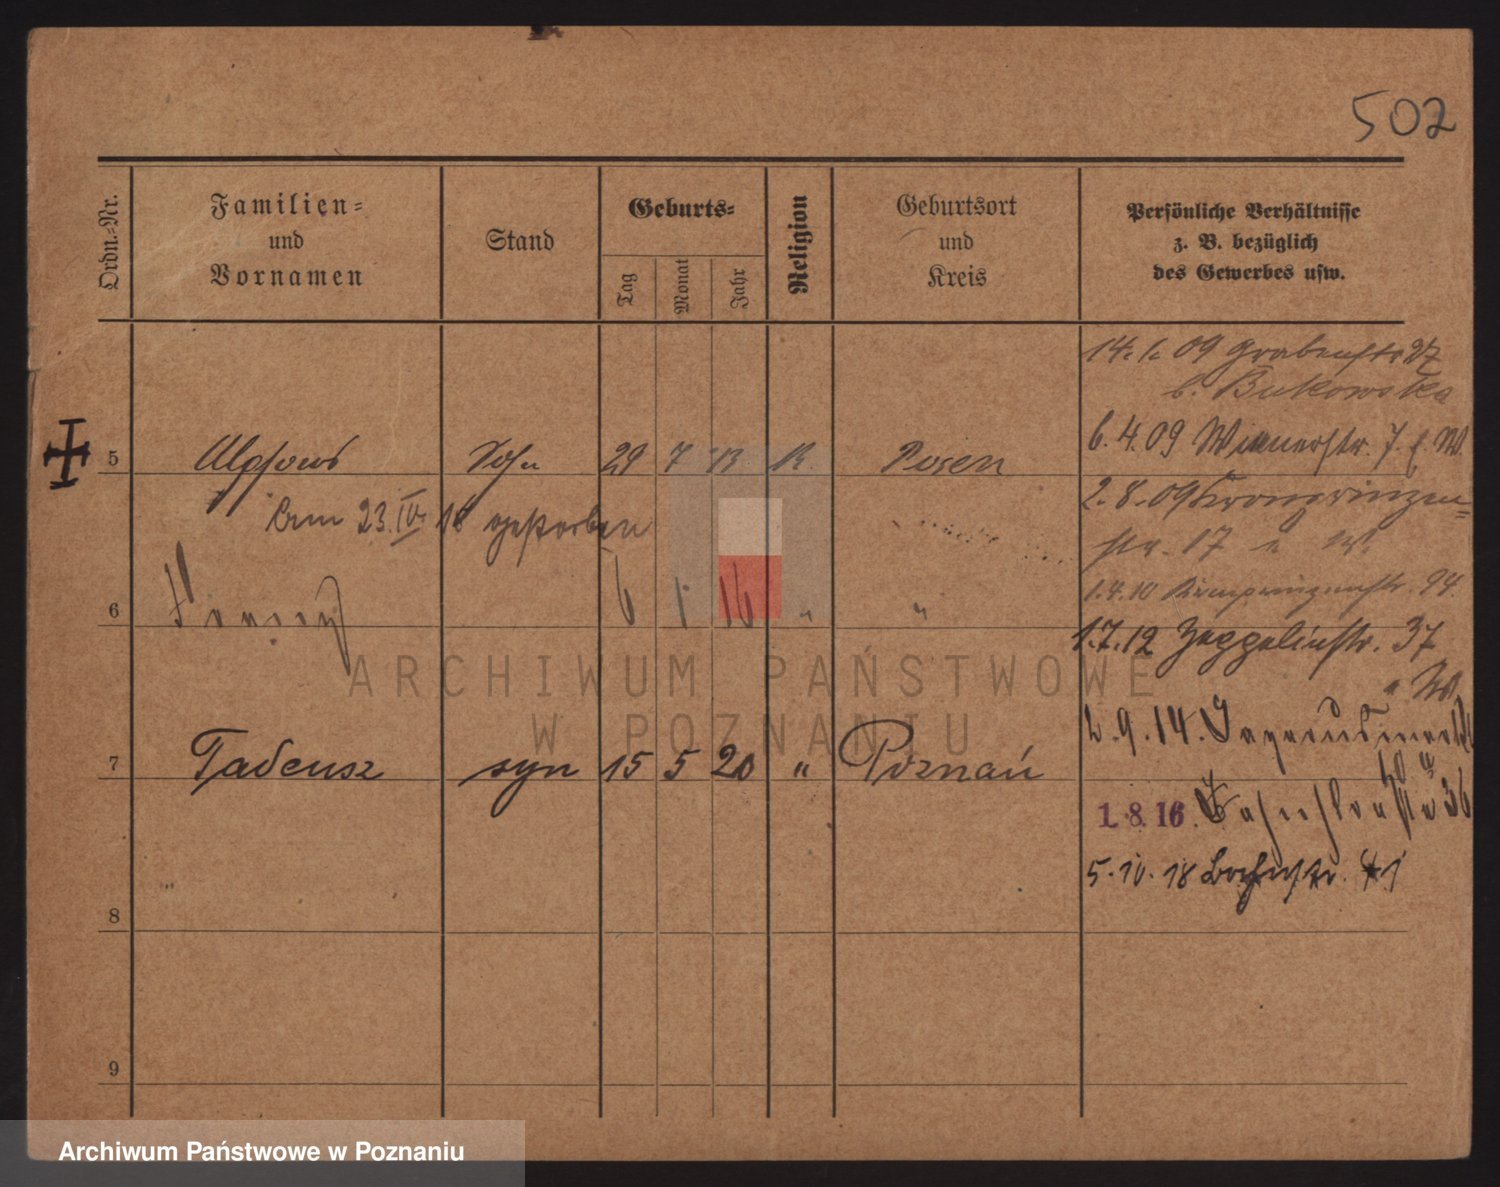 502
Ordn.-Nr.
Familien-
und
Vornamen
Stand
Geburts-
Tag
Monat
Jahr
Religion
Geburtsort
und
Kreis
Persönliche Verhältnisse
z. B. bezüglich
des Gewerbes usw.
14. 1. 09 Grabenstr 27
b. Bukowska
6. 4. 09 Wienerstr. 7. W.
5 Alphons Sohn 29 7 13 K. Posen
2. 8. 09 Kronprinzen=
str. 17 W.
23. IV. gestorben
1. 4. 10 Kronprinzenstr. 94.
6 6 1 16 " "
1.7.12 Zeppelinstr. 37
" W.
2. 9. 14.
7 Tadeusz syn 15 5 20 " Poznań
1. 8. 16.
5. 10. 18
8
9
ARCHIWUM PAŃSTWOWE
W POZNANIU
Archiwum Państwowe w Poznaniu